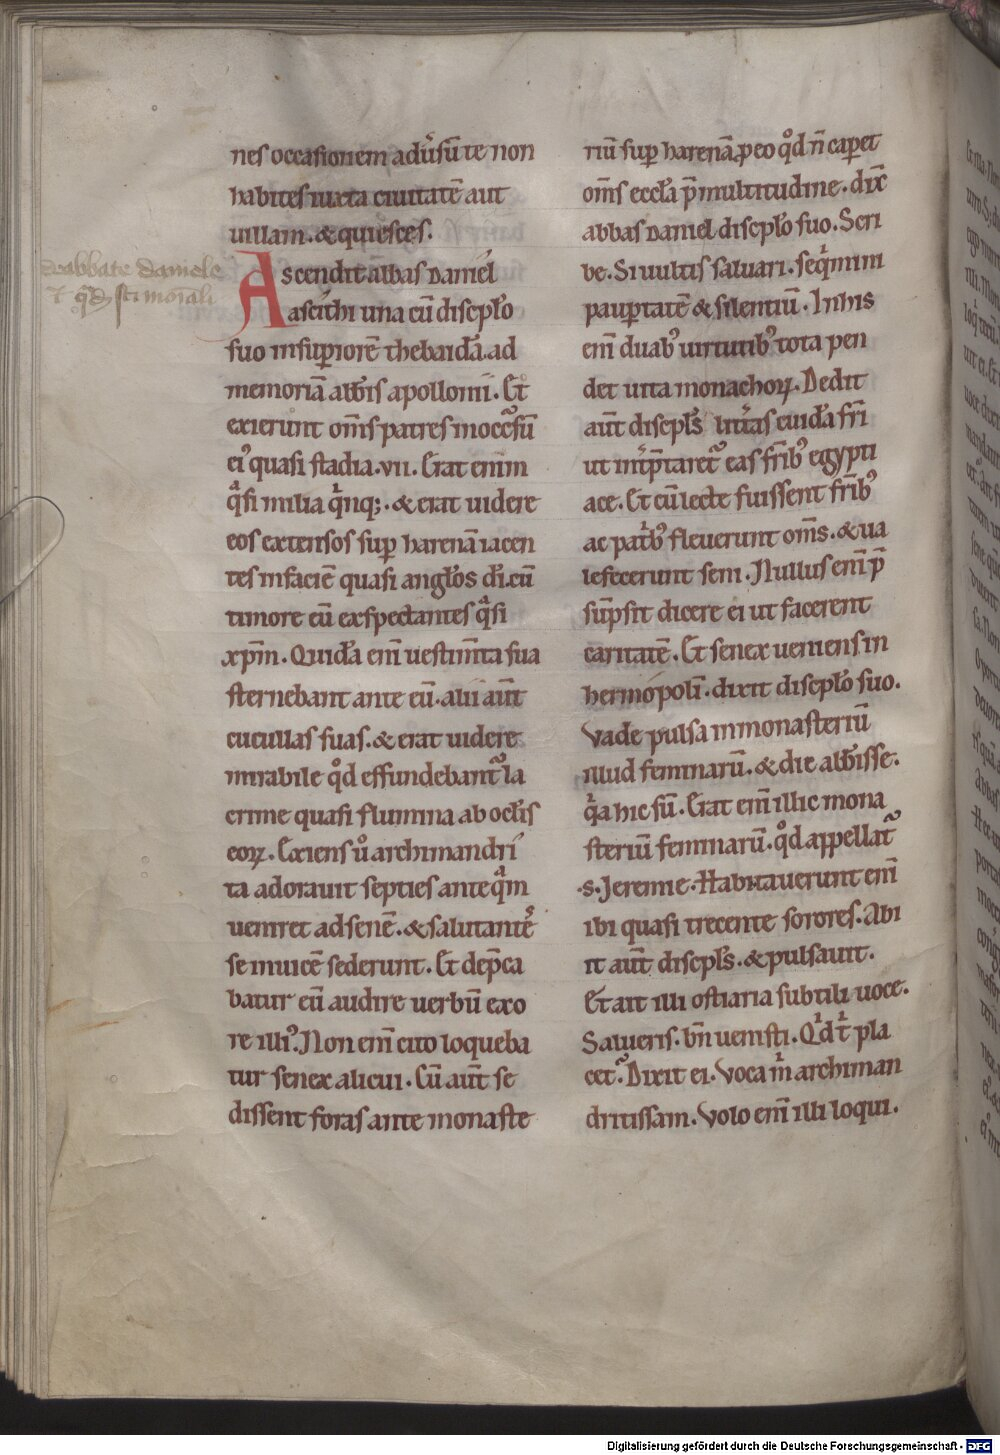 nes occasionem adũsũ te non
habites iuxta ciuitatē aut
uillam. & quiesces.
de abbate daniele
Ascendit abbas Daniel
a scithi una cũ discplo
suo insuꝑiorē thebaidā. ad
memoriā abb̃is apollonii. Et
exierunt om̃s patres inoccᷓsũ
ei᷒ quasi stadia .vii. Erat enim
qᷓsi milia qᷓnq;. & erat uidere
eos extensos suꝑ harenā iacen
tes infaciē quasi angl̃os di. cũ
timore eũ exspectantes qᷓsi
xp̃m. Quidã em̃ uestim̃ta sua
sternebant ante eũ. alii aũt
cucullas suas. & erat uidere
mirabile qͦd effundebantᷣ la
crime quasi flumina ab ocl̃is
eoꝝ. Exiens uͦ archimandri
ta adorauit septies anteqᷓm
ueniret ad senē. & salutante᷒
se inuicē sederunt. Et dep̃ca
batur eũ audire uerbũ ex o
re illi᷒. Non em̃ cito loqueba
tur senex alicui. Cũ aũt se
dissent foras ante monaste
riũ suꝑ harenā, ꝑeo qͦd ñ caperet
om̃s eccl̃a p̃ multitudine. dix̃
abbas Daniel discplo suo. Scri
be. Si uultis saluari. seqͥmini
pauꝑtatē & silentiũ. In his
em̃ duab᷒ uirtutib᷒ tota pen
det uita monachoꝝ. Dedit
aũt discpl̃s litt̃as cuidā fr̃i
ut int̃p̃taretᷣ eas fr̃ib᷒ egypti
ace. Et cũ lecte fuissent fr̃ib᷒
ac patͥb᷒ fleuerunt om̃s. & ua
lefecerunt seni. Nullus em̃ p̃
sũpsit dicere ei ut facerent
caritatē. Et senex ueniens in
hermopolĩ. dixit discplo suo.
Vade pulsa in monasteriũ
illud feminarũ. & dic abb̃isse.
qᷓa hic sũ. Erat em̃ illic mona
steriũ feminarũ. qͦd appellatᷣ
.s. Jeremie. Habitauerunt em̃
ibi quasi trecente sorores. Abi
it aũt discpl̃s. & pulsauit.
Et ait illi ostiaria subtili uoce.
Salueris. bñ uenisti. Qͥd t̃ pla
cetᷣ. Dixit ei. Voca m̃ archiman
dritissam. Volo em̃ illi loqui.
Digitalisierung gefördert durch die Deutsche Forschungsgemeinschaft - DFG